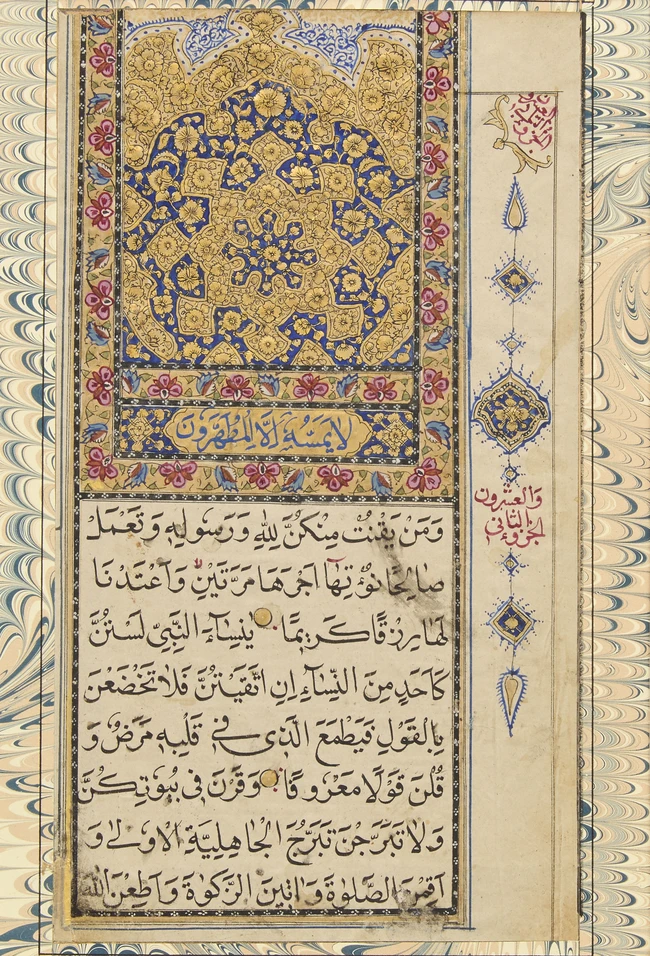 لا يمسه إلا المطهرون
وَمَنْ يَقْنُتْ مِنْكُنَّ لِلّٰهِ وَرَسُولِهِ وَتَعْمَلْ
صَالِحًا نُؤْتِهَا اَجْرَهَا مَرَّتَيْنِ وَاَعْتَدْنَا
لَهَا رِزْقًا كَرِيمًا يٰنِسَاءَ النَّبِيِّ لَسْتُنَّ
كَاَحَدٍ مِنَ النِّسَاءِ اِنِ اتَّقَيْتُنَّ فَلَا تَخْضَعْنَ
بِالْقَوْلِ فَيَطْمَعَ الَّذِي فِي قَلْبِهِ مَرَضٌ وَ
قُلْنَ قَوْلًا مَعْرُوفًا وَقَرْنَ فِي بُيُوتِكُنَّ
وَلَا تَبَرَّجْنَ تَبَرُّجَ الْجَاهِلِيَّةِ الْاُولٰى وَ
اَقِمْنَ الصَّلٰوةَ وَاٰتِينَ الزَّكٰوةَ وَاَطِعْنَ اللّٰهَ
الجزوء الثاني
والعشرون